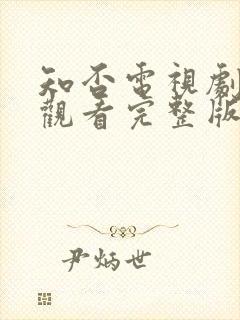 知否電視劇
觀看完整版
尹炳世